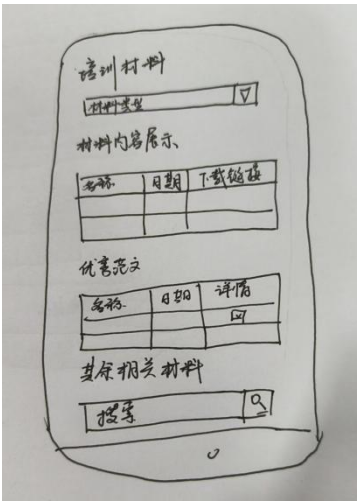 培训材料
材料类型
材料内容展示
名称 日期 下载链接
优秀范文
名称 日期 详情
其余相关材料
搜索